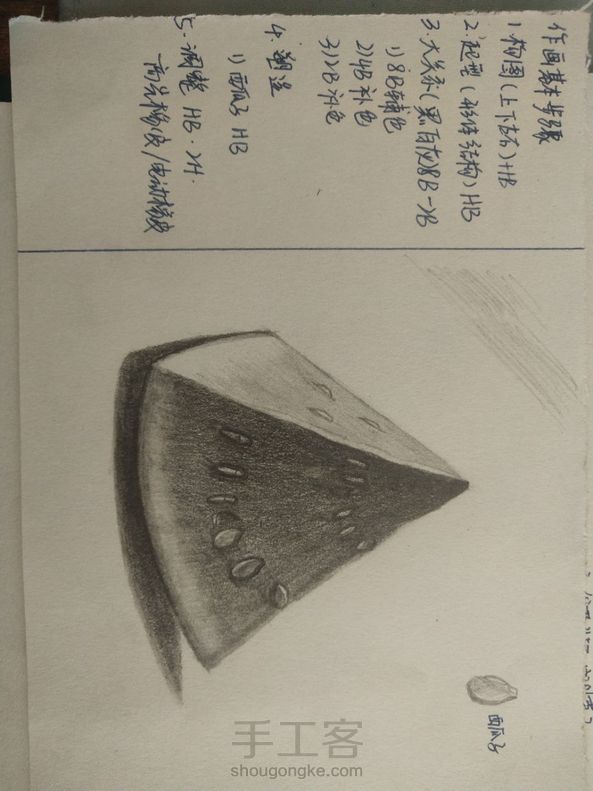 作画基本步骤
1.构图(上下左右)HB
2.起型(形体结构)HB
3.大关系(黑白灰)8B→2B
1)8B铺色
2)4B补色
3)2B补色
4.塑造
1)西瓜子 HB
5.调整 HB.2H.
高光橡皮/电动橡皮
西瓜子
手工客
shougongke.com